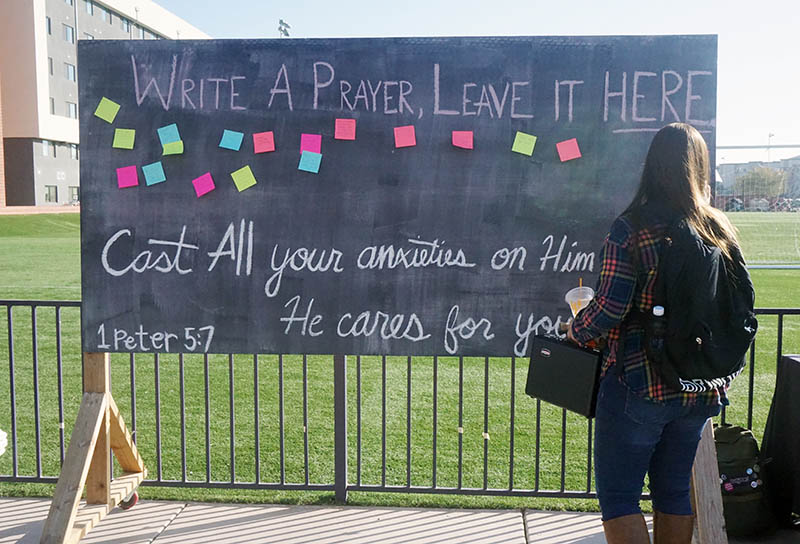 Write A Prayer, Leave it HERE
Cast All your anxieties on Him
He cares for you
1 Peter 5:7